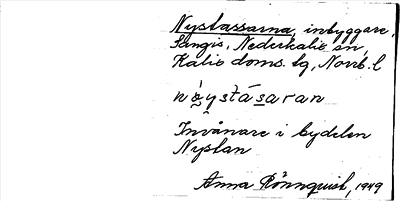 Nystassarna, inbyggare,
Sangis, Nederkalix sn,
Kalix doms. lg, Norrb. l
Invånare i bydelen
Nystan
Anna Rönnquist, 1949